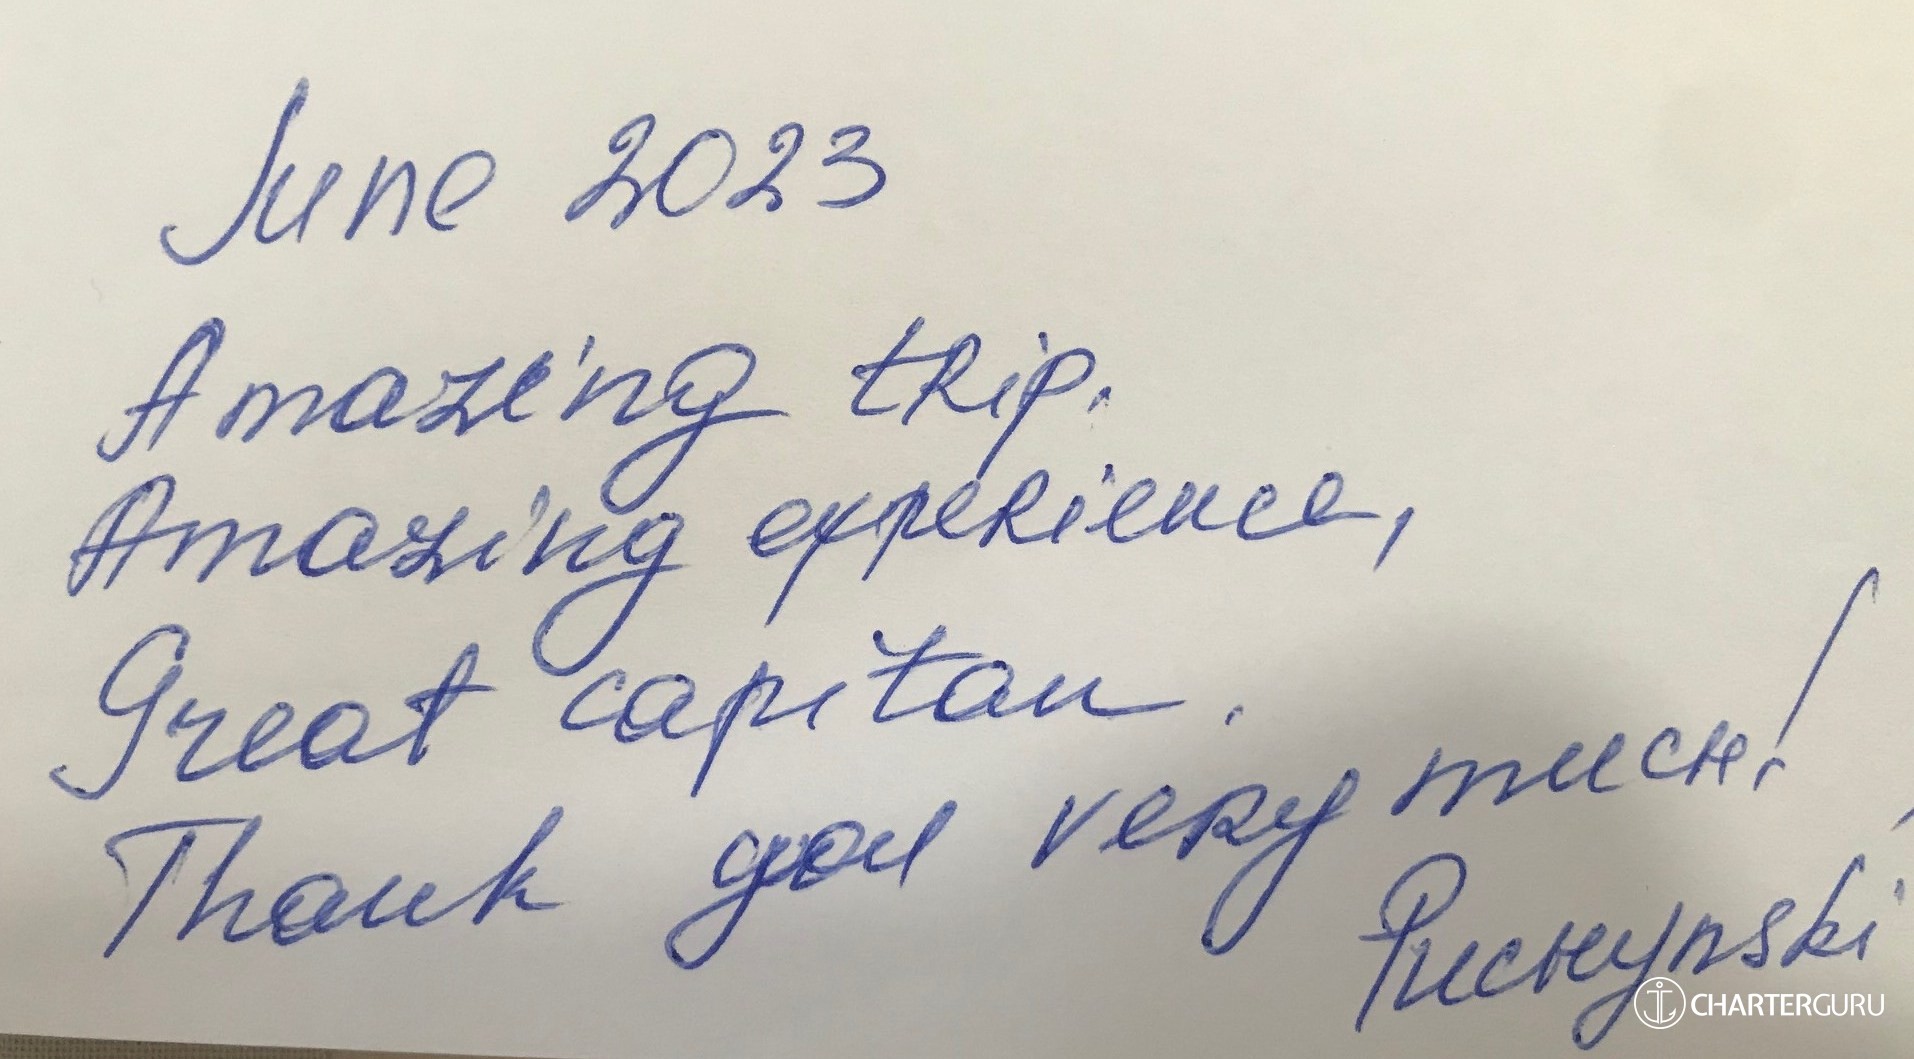 June 2023
Amazing trip.
Amazing experience,
Great capitan.
Thank you very much!
Puchynski
CHARTERGURU